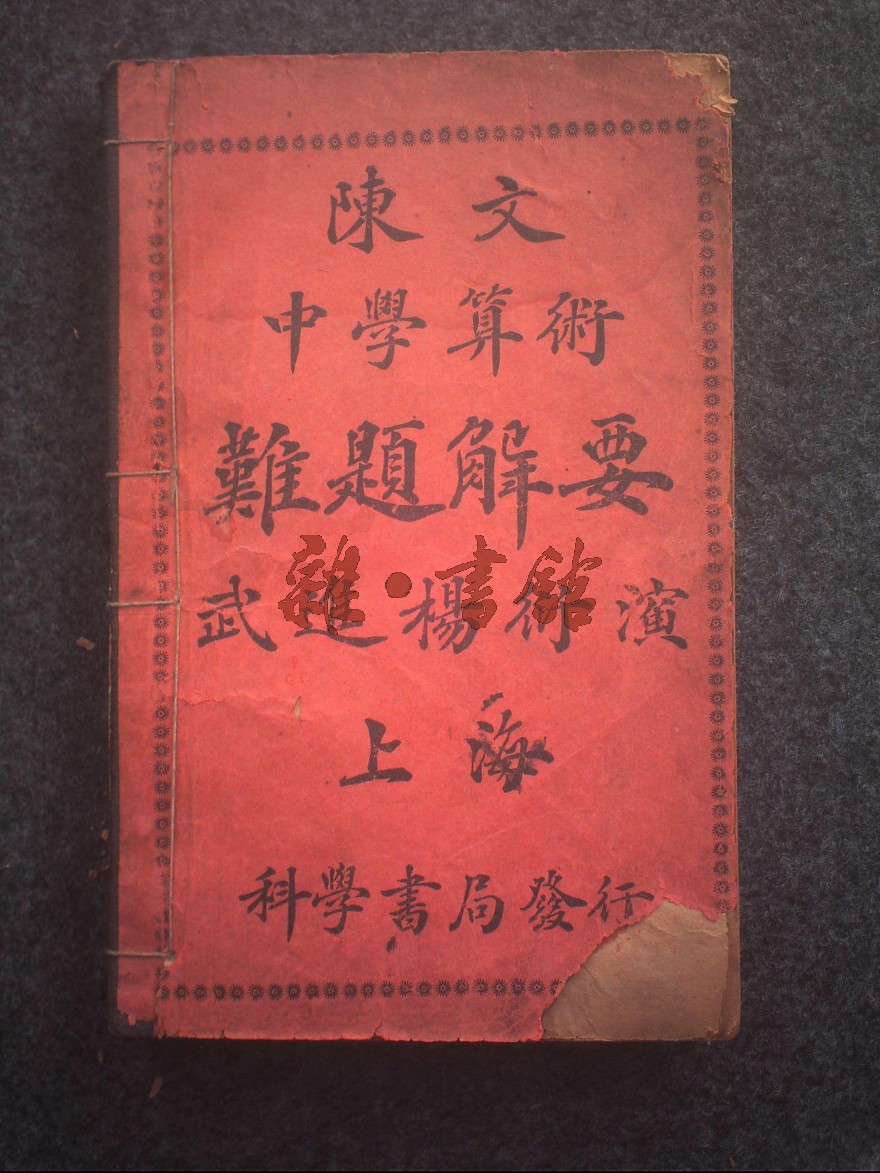 陳文
中學算術
難題解要
武進楊術演
雜·書館
上海
科學書局發行